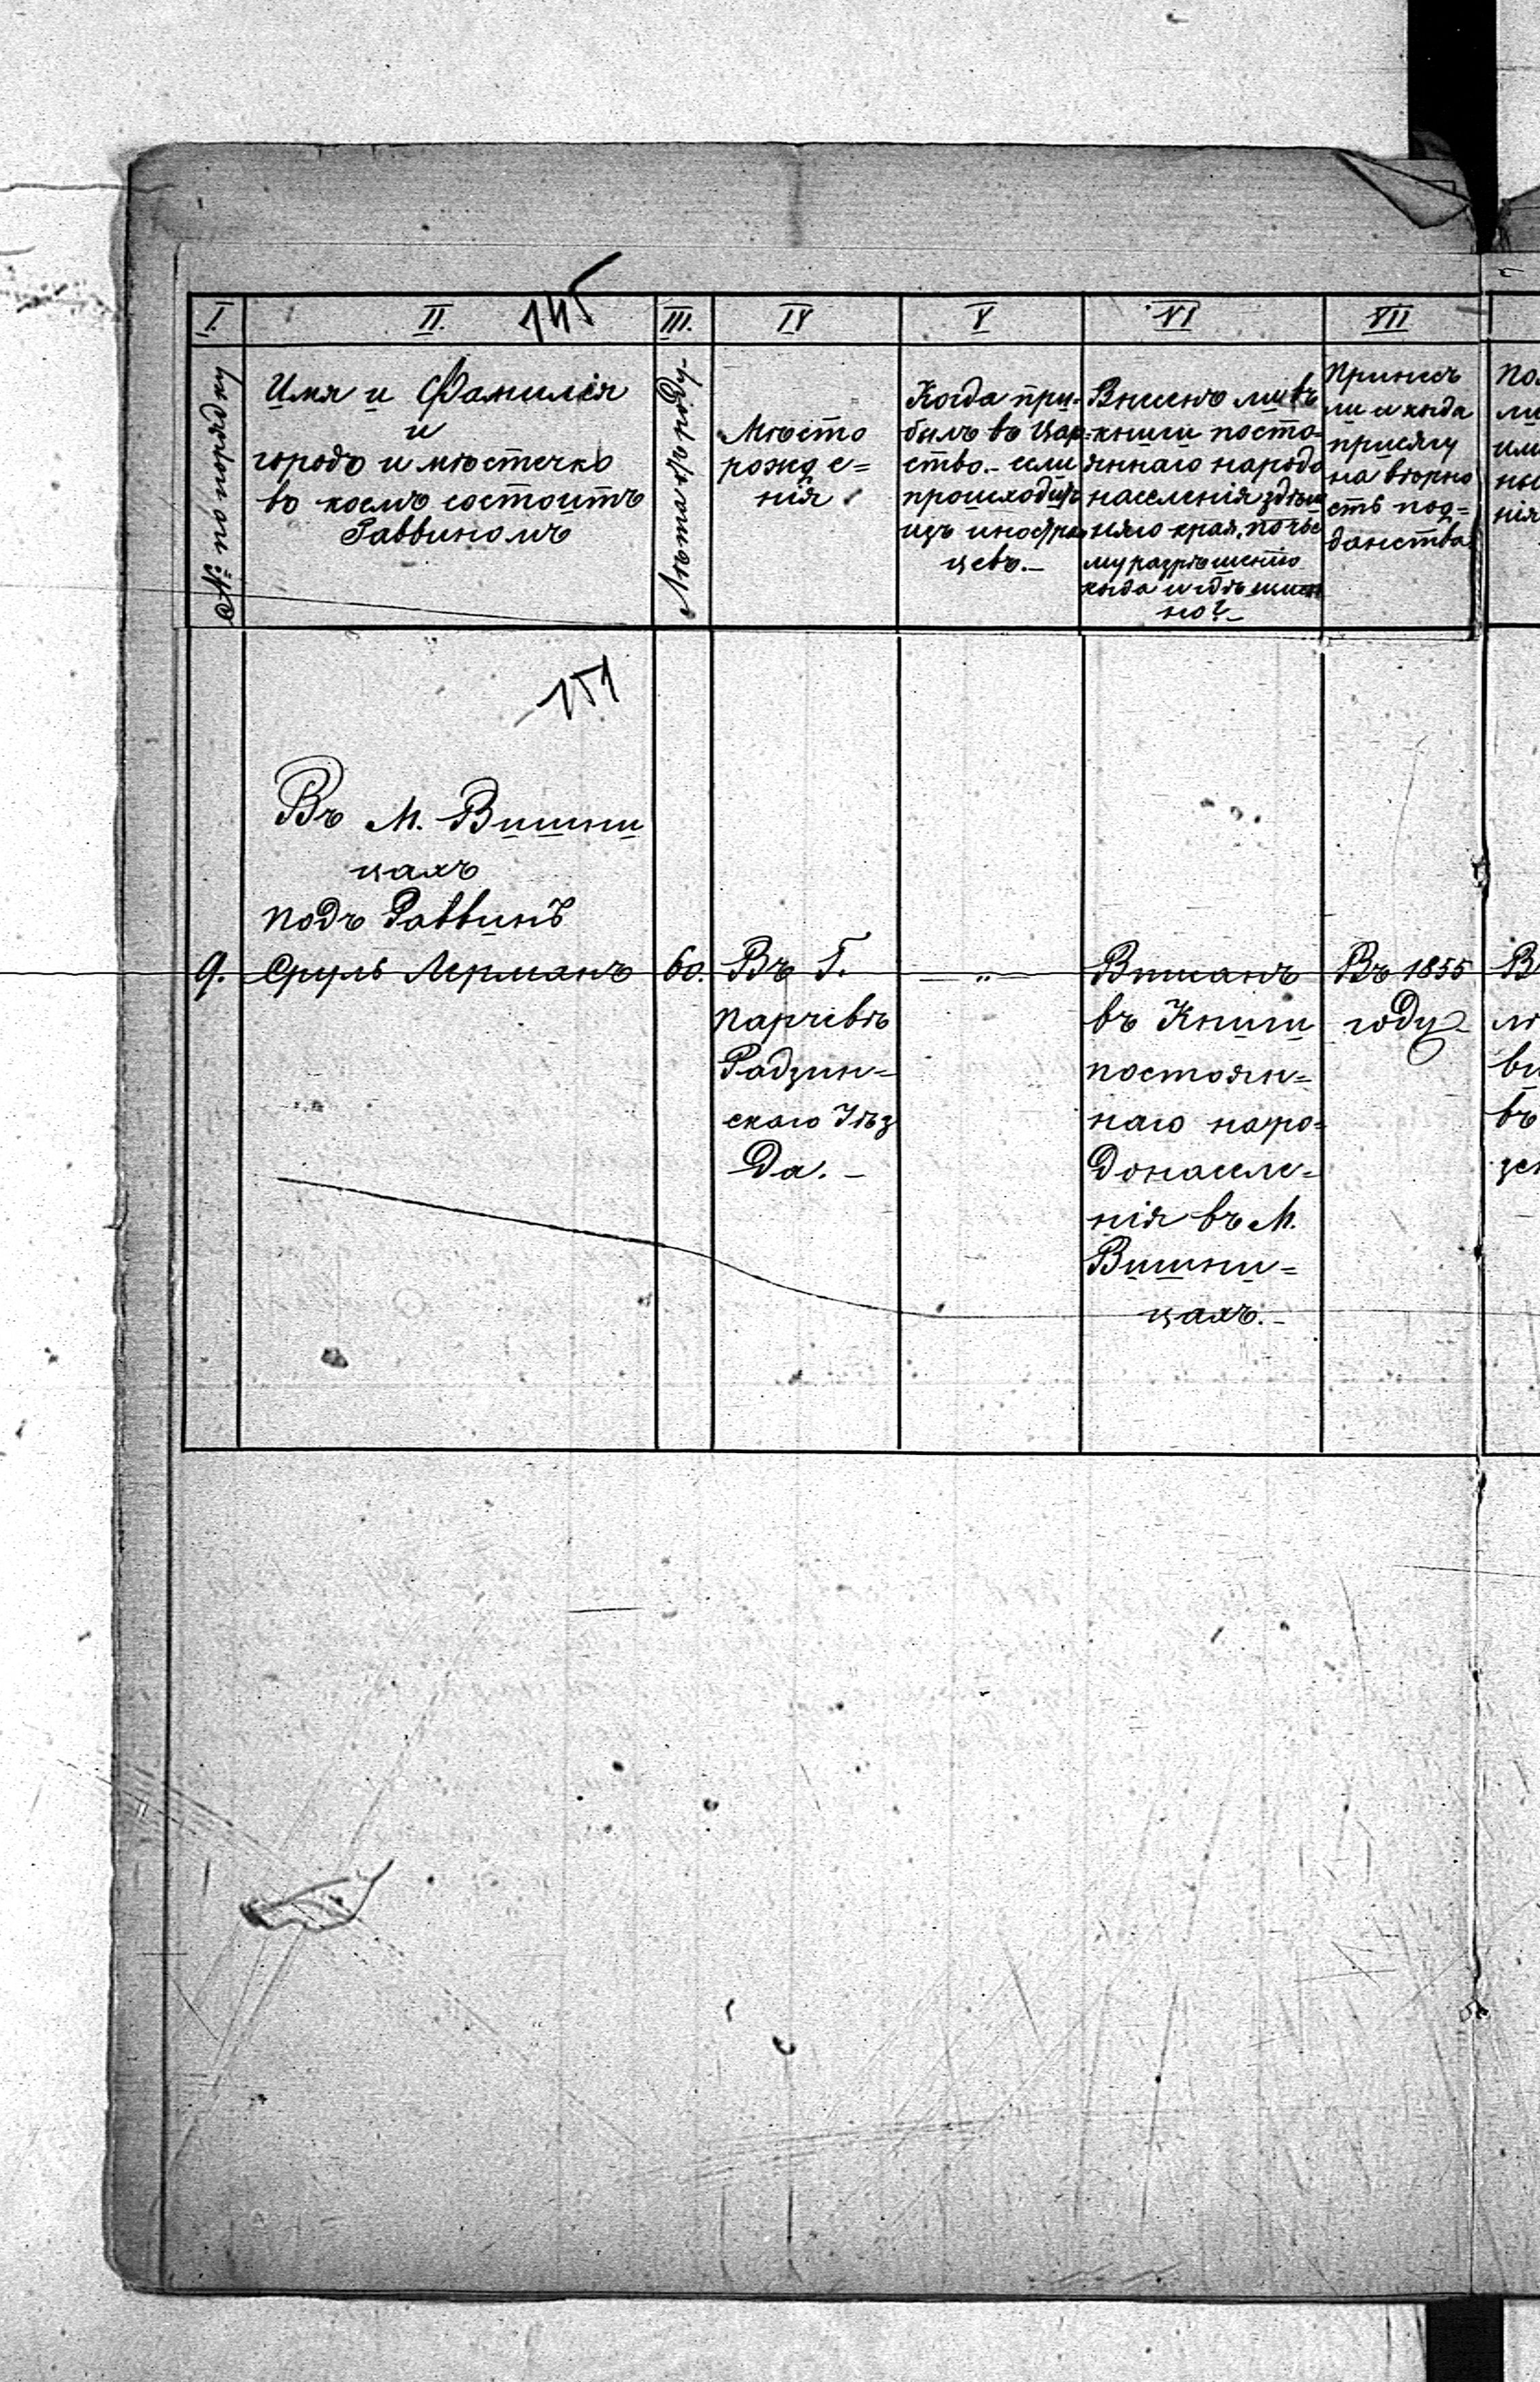 145
I.
II.
III.
IV
V
VI
VII
№ по порядку
Имя и Фамилія
и
городъ и мѣстечко
въ коемъ состоитъ
Раввиномъ
Лѣта отъ роду
Мѣсто
рожде=
нія
Когда при-
былъ въ Цар-
ство.- если
происходитъ
изъ иностран
цевъ.-
Внесенъ ли въ
книги посто-
яннаго народо
населенія здѣш
няго края, по чье
му разрѣшенію
когда и гдѣ имен
но?-
Принесъ
ли и когда
присягу
на вѣрно
сть под=
данства
151
Въ М. Вишни
цахъ
подъ Раввинъ
9. Сруль Лерманъ
60.
Въ Г.
Парчевѣ
Радзин=
скаго Уѣз
да.-
— „ —
Вписанъ
въ Книги
постоян=
наго наро=
донаселе=
нія въ М.
Вишни=
цахъ.-
Въ 1855
году